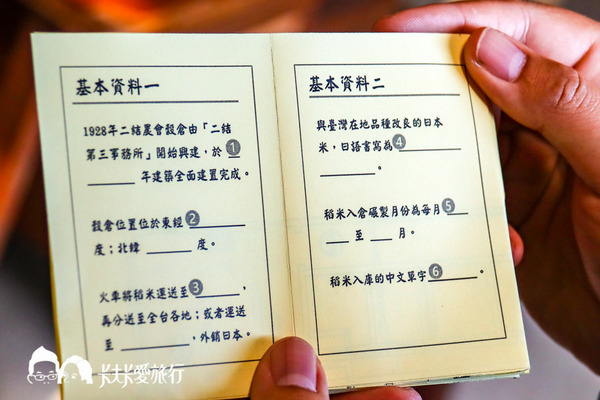 基本資料一
1928年二結農會穀倉由「二結
第三事務所」開始興建,於 1
年建築全面建置完成。
穀倉位置位於東經 2
度;北緯 度。
火車將稻米運送至 3 ,
再分送至全台各地;或者運送
至 ,外銷日本。
基本資料二
與臺灣在地品種改良的日本
米,日語書寫為 4
。
稻米入倉碾製月份為每月 5
至 月。
稻米入庫的中文單字 6 。
卡大卡愛旅行